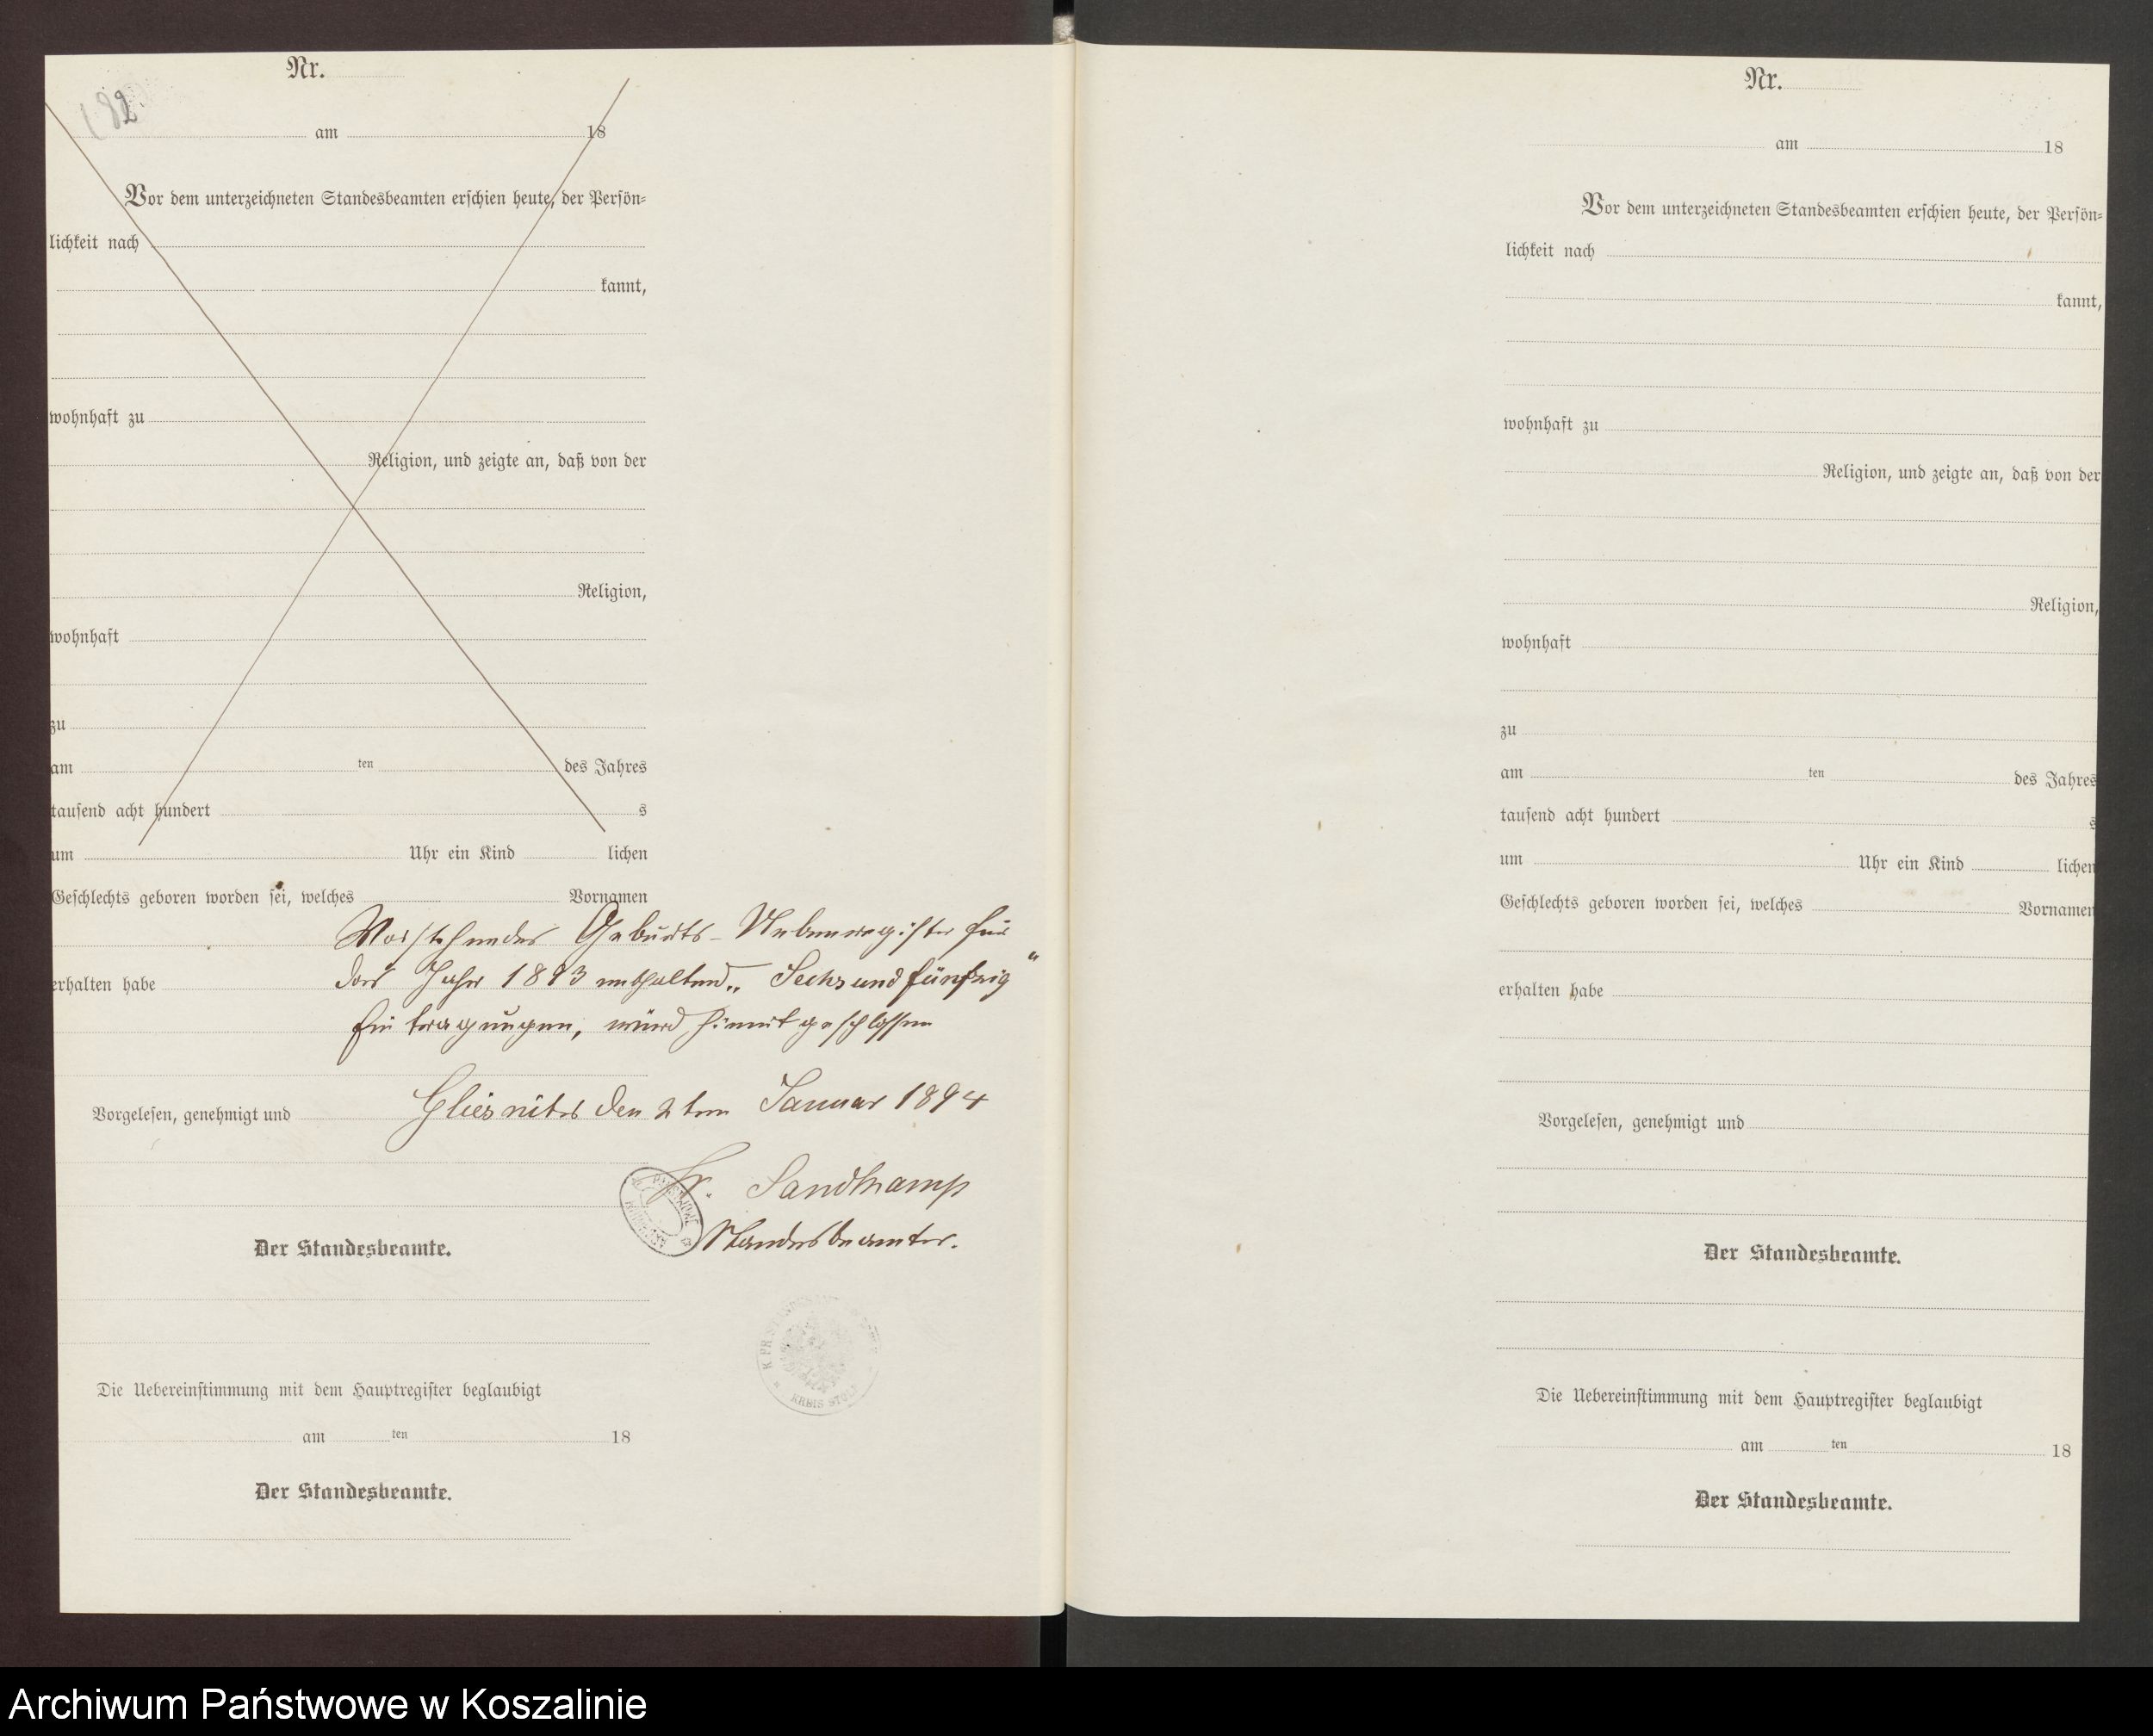 Nr.
182
am 18
Vor dem unterzeichneten Standesbeamten erschien heute, der Persön=
lichkeit nach
kannt,
wohnhaft zu
Religion, und zeigte an, daß von der
Religion,
wohnhaft
zu
am ten des Jahres
tausend acht hundert s
um Uhr ein Kind lichen
Geschlechts geboren worden sei, welches Vornamen
Vorstehendes Geburts-Nebenregister für
das Jahr 1893 enthaltend „Sechsundfünfzig“
erhalten habe
Eintragungen, wird hiermit geschlossen
Gliesnitz den 2ten Januar 1894
Vorgelesen, genehmigt und
Fr. Sandkamp
Standesbeamter.
Der Standesbeamte.
KREIS STOLP
Die Uebereinstimmung mit dem Hauptregister beglaubigt
am ten 18
Der Standesbeamte.
Nr.
am 18
Vor dem unterzeichneten Standesbeamten erschien heute, der Persön=
lichkeit nach
kannt,
wohnhaft zu
Religion, und zeigte an, daß von der
Religion,
wohnhaft
zu
am ten des Jahres
tausend acht hundert s
um Uhr ein Kind lichen
Geschlechts geboren worden sei, welches Vornamen
erhalten habe
Vorgelesen, genehmigt und
Der Standesbeamte.
Die Uebereinstimmung mit dem Hauptregister beglaubigt
am ten 18
Der Standesbeamte.
Archiwum Państwowe w Koszalinie